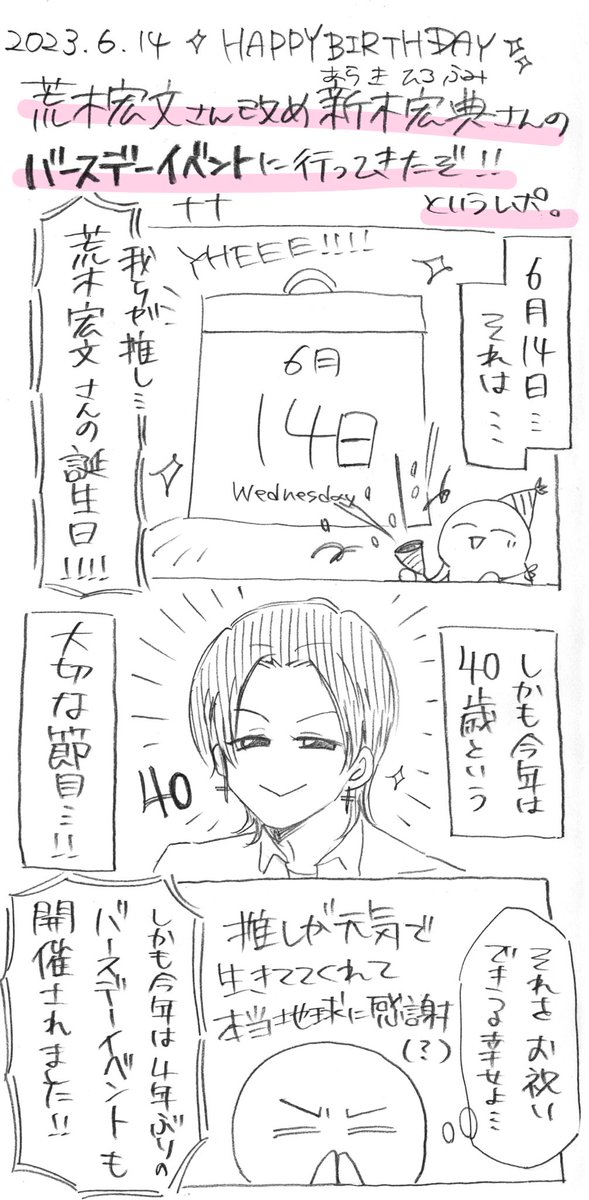 2023.6.14 HAPPY BIRTHDAY
あらき ひろふみ
荒木宏文さん改め 新木宏典さんの
バースデーイベントに行ってきたぞ!!
というレポ。
6月14日…
それは……
YHEEE!!!!
6月
14日
Wednesday
我らが推し…
荒木宏文さんの誕生日!!!!
しかも今年は
40歳という
40
大切な節目…!!
それをお祝い
できる幸せよ…
推しが元気で
生きててくれて
本当地球に感謝
(?)
しかも今年は4年ぶりの
バースデーイベントも
開催されました!!